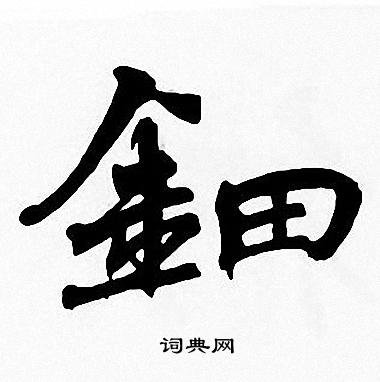 鈿
词典网